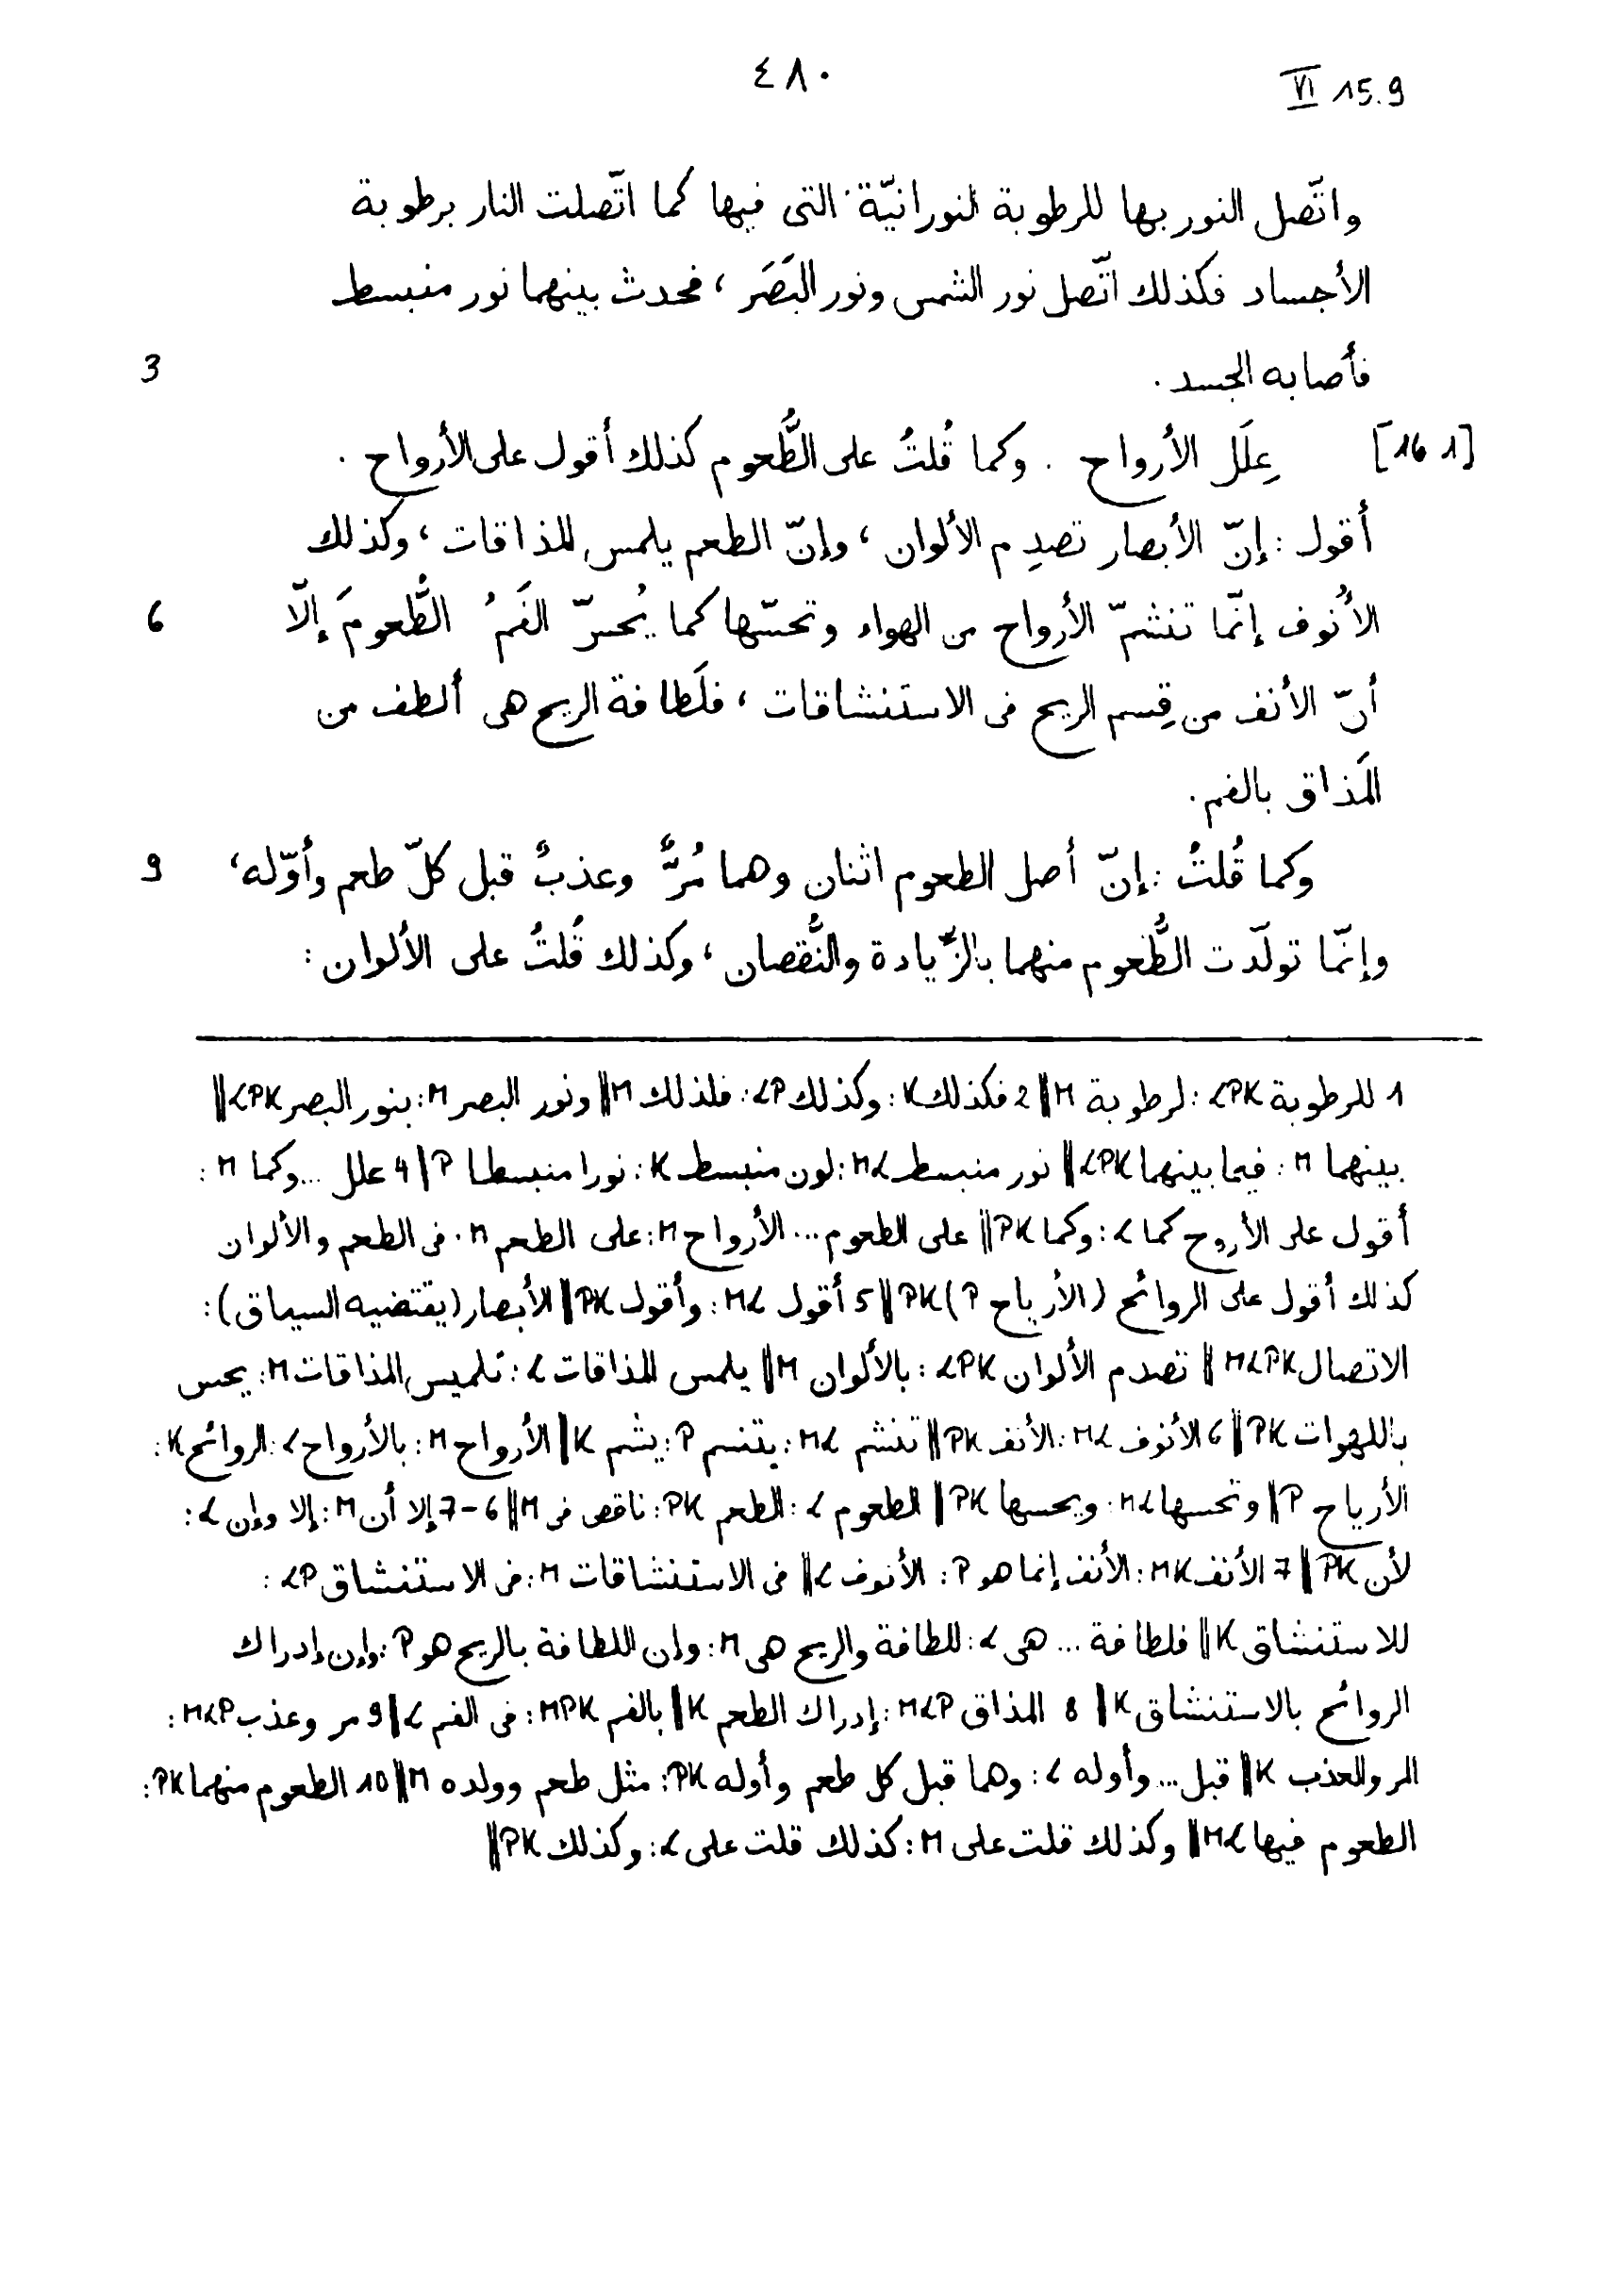 ٤٨٠
VI 15.9
واتّصل النور بها للرطوبة النورانيّة التى فيها كما اتّصلت النار برطوبة
الأجساد فكذلك اتّصل نور الشمس ونور البَصَر ، فحدث بينهما نور منبسط
فأصابه الجسد . 3
[16 1] عِلَل الأرواح . وكما قُلتُ على الطُّعوم كذلك أقول على الأرواح .
أقول : إنّ الأبصار تصدِم الألوان ، وإنّ الطعم يلمس المذاقات ، وكذلك
الأُنوف إنّما تنشمّ الأرواح من الهواء وتحسّها كما يُحسّ الفَمُ الطُّعومَ إلّا 6
أنّ الأنف من قِسم الريح فى الاستنشاقات ، فلَطافة الريح هى ألطف من
المَذاق بالفم .
وكما قُلتُ : إنّ أصل الطعوم اثنان وهما مُرٌّ وعذبٌ قبل كلّ طعم وأوّله ، 9
وإنّما تولّدت الطُّعوم منهما بالزّيادة والنُّقصان ، وكذلك قُلتُ على الألوان :
1 للرطوبة LPK : لرطوبة M || 2 فكذلك K : وكذلك LP : فلذلك M || ونور البصر M : بنور البصر LPK ||
بينهما M : فيما بينهما LPK || نور منبسط ML : لون منبسط K : نورا منبسطا P || 4 علل ... وكما M :
أقول على الأروح كما L : وكما PK || على الطعوم ... الأرواح M : على الطعم M . فى الطعم والألوان
كذلك أقول على الروائح (الأرياح P) PK || 5 أقول ML : وأقول PK || الأبصار (يقتضيه السياق) :
الاتصال MLPK || تصدم الألوان LPK : بالألوان M || يلمس المذاقات L : تلميس المذاقات M : يحس
باللهوات PK || 6 الأنوف ML : الأنف PK || تنشم ML : يتنسم P : يشم K || الأرواح M : بالأرواح L : الروائح K :
الأرياح P || وتحسها ML : ويحسها PK || الطعوم L : الطعم PK : ناقص فى M || 6–7 إلا أن M : إلا وإن L :
لأن PK || 7 الأنف MK : الأنف إنما هو P : الأنوف L || فى الاستنشاقات M : فى الاستنشاق LP :
للاستنشاق K || فلطافة ... هى L : للطافة والريح هى M : وإن اللطافة بالريح هو P : وإن إدراك
الروائح بالاستنشاق K || 8 المذاق MLP : إدراك الطعم K || بالفم MPK : فى الفم L || 9 مر وعذب MLP :
المر والعذب K || قبل ... وأوله L : وهما قبل كل طعم وأوله PK : مثل طعم وولده M || 10 الطعوم منهما PK :
الطعوم فيها ML || وكذلك قلت على M : كذلك قلت على L : وكذلك PK ||